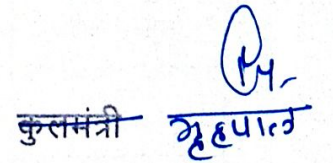 कुलमंत्री गृहपाल